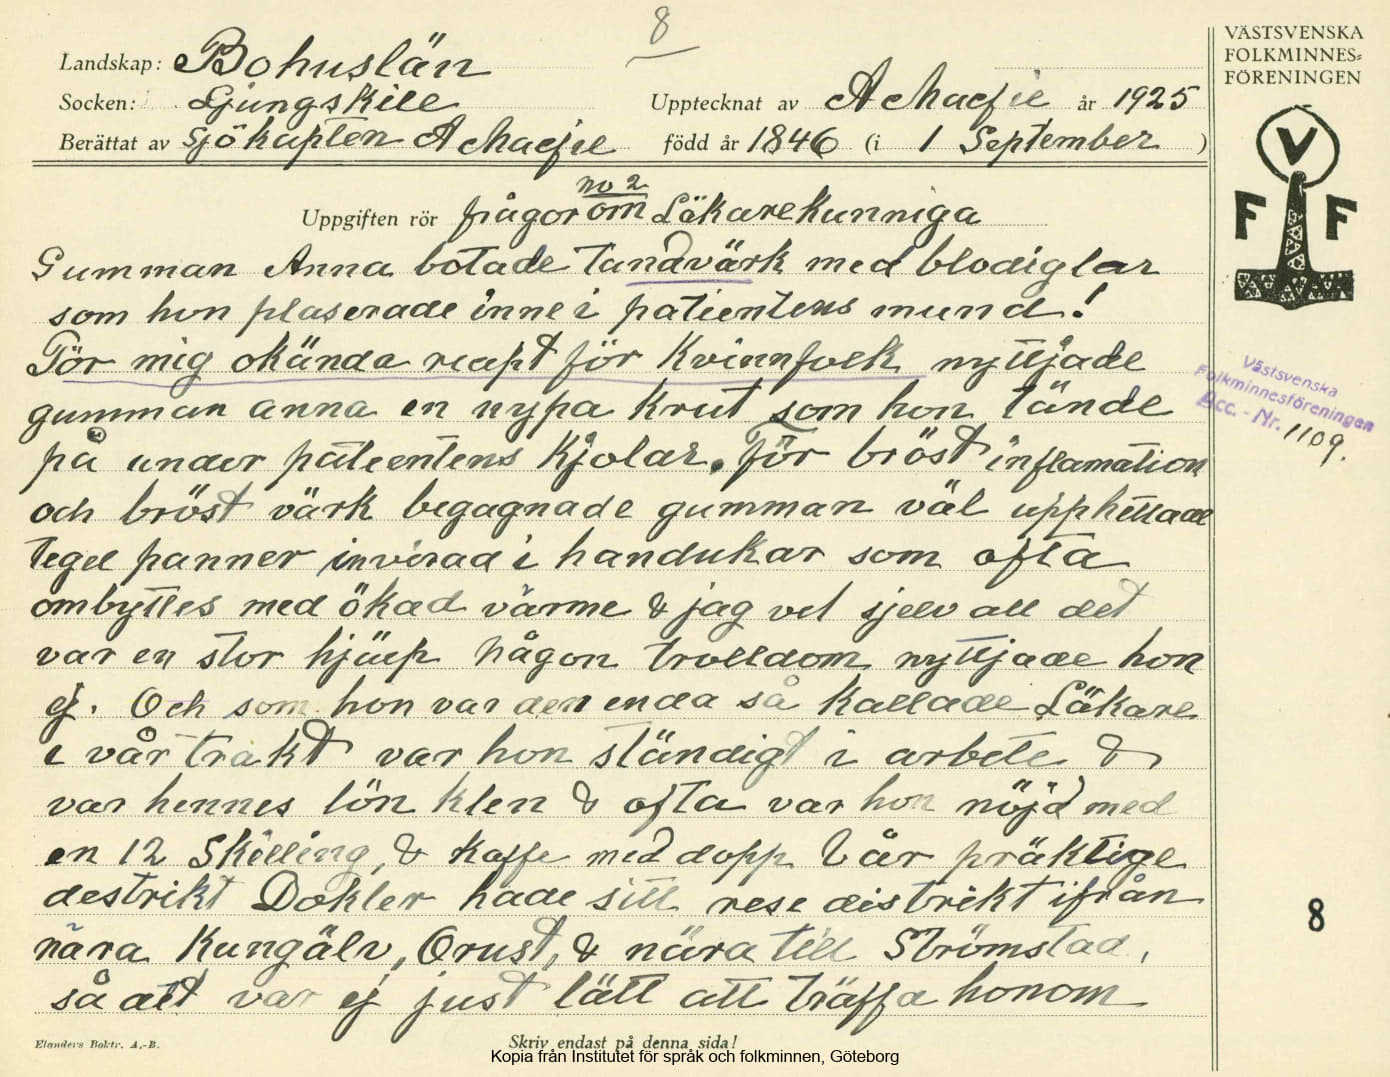 8
VÄSTSVENSKA
FOLKMINNES=
FÖRENINGEN
Landskap: Bohuslän
Socken: Ljungskile
Upptecknat av A Macfie år 1925
Berättat av sjökapten A Macfie född år 1846 (i 1 September )
no 2
Uppgiften rör frågor om Läkarekunniga
V
F F
Gumman Anna botade tandvärk med blodiglar
som hon plaserade inne i patientens mund!
För mig okända reapt för Kvinnfolk nyttjade
gumman anna en nypa Krut som hon tände
på under patientens Kjolar. för bröst inflamation
och bröst värk begagnade gumman väl upphettade
tegel panner invirad i handukar som ofta
ombyttes med ökad värme & jag vet sjelv att det
var en stor hjälp någon trolldom nyttjade hon
ej. Och som hon var den enda så kallade Läkare
i vår trakt var hon ständigt i arbete &
var hennes lön klen & ofta var hon nöjd med
en 12 Skilling, & kaffe med dopp Vår präktige
destrikt Dokter hade sitt rese distrikt ifrån
nära Kungälv, Orust, & nära till Strömstad,
så att var ej just lätt att träffa honom
Västsvenska
Folkminnesföreningen
Acc. - Nr. 1109.
8
Elanders Boktr. A.-B.
Skriv endast på denna sida!
Kopia från Institutet för språk och folkminnen, Göteborg